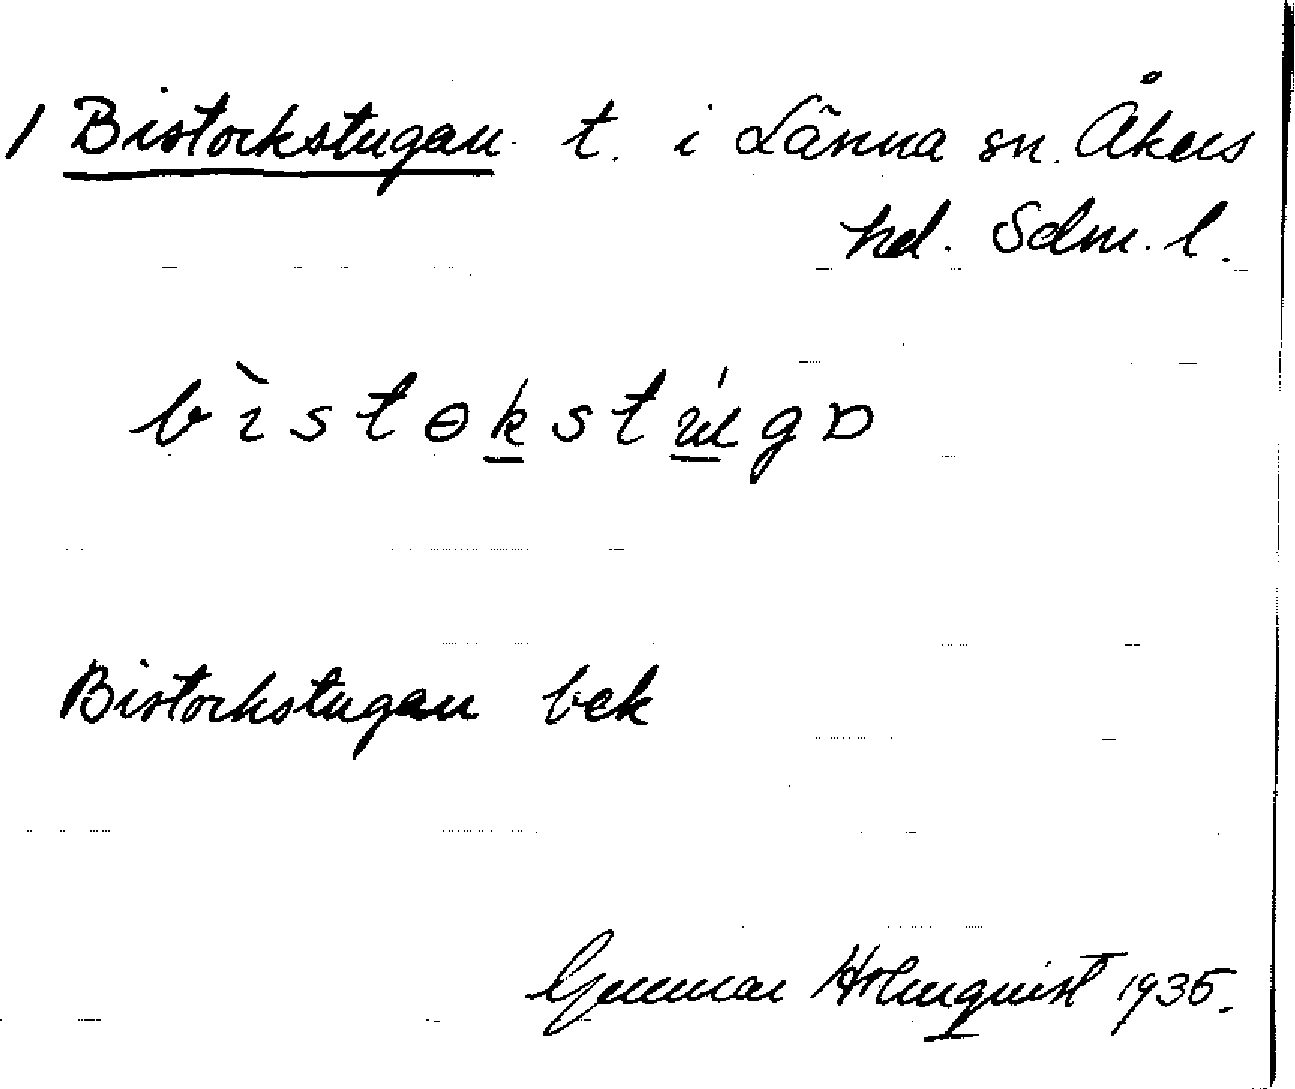 1 Bistockstugan t. i Länna sn. Åkers
hd. Sdm. l.
bìstɵkstúgɒ
Bistockstugan bek
Gunnar Holmquist 1935.